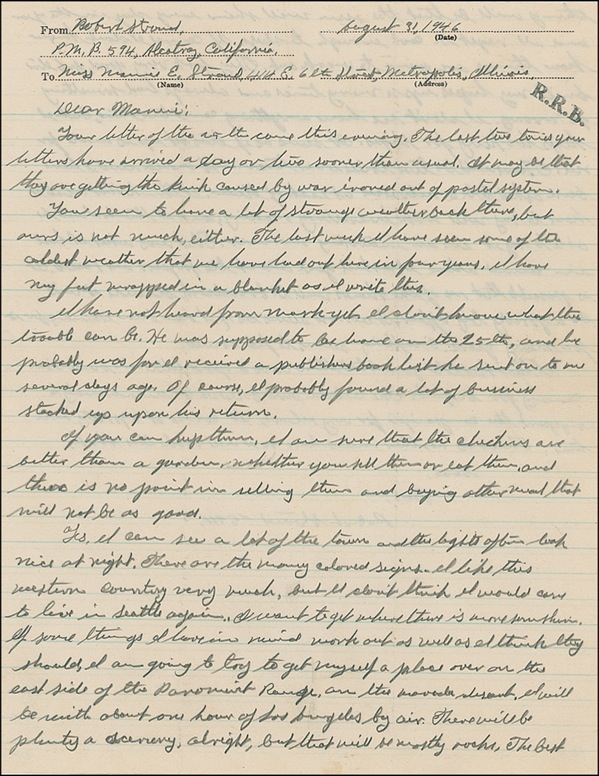 From Robert Stroud, August 31, 1946
(Date)
P.M.B. 594, Alcatraz, California.
To Miss Mamie E. Stroud, 414 E. 6th Street Metropolis, Illinois,
(Name) (Address)
R.R.B.
Dear Mamie:
Your letter of the came this evening. The last two times your
letters have arrived a day or two sooner than usual. It may be that
they are getting the kink caused by war ironed out of postal system.
You seem to have a lot of strange weather back there, but
ours is not much, either. The last week I have seen some of the
coldest weather that we have had out here in four years. I have
my feet wrapped in a blanket as I write this.
I have not heard from Mark yet. I don't know what the
trouble can be. He was supposed to be home on the 25th, and he
probably was for I received a publishers book list he sent on to me
several days ago. Of course, I probably found a lot of business
stacked up upon his return.
If you can keep them, I am sure that the chickens are
better than a garden, whether you sell them or eat them, and
there is no point in selling them and buying other meat that
will not be as good.
Yes, I can see a lot of the town and the lights often look
nice at night. There are the many colored signs. I like this
western country very much, but I don't think I would care
to live in Seattle again. I want to get where there is more sunshine.
If some things I have in mind work out as well as I think they
should, I am going to try to get myself a place over on the
east side of the Range, on the desert. I will
be with about one hour of Los Angeles by air. There will be
plenty a scenery, alright, but that will be mostly rocks. The best